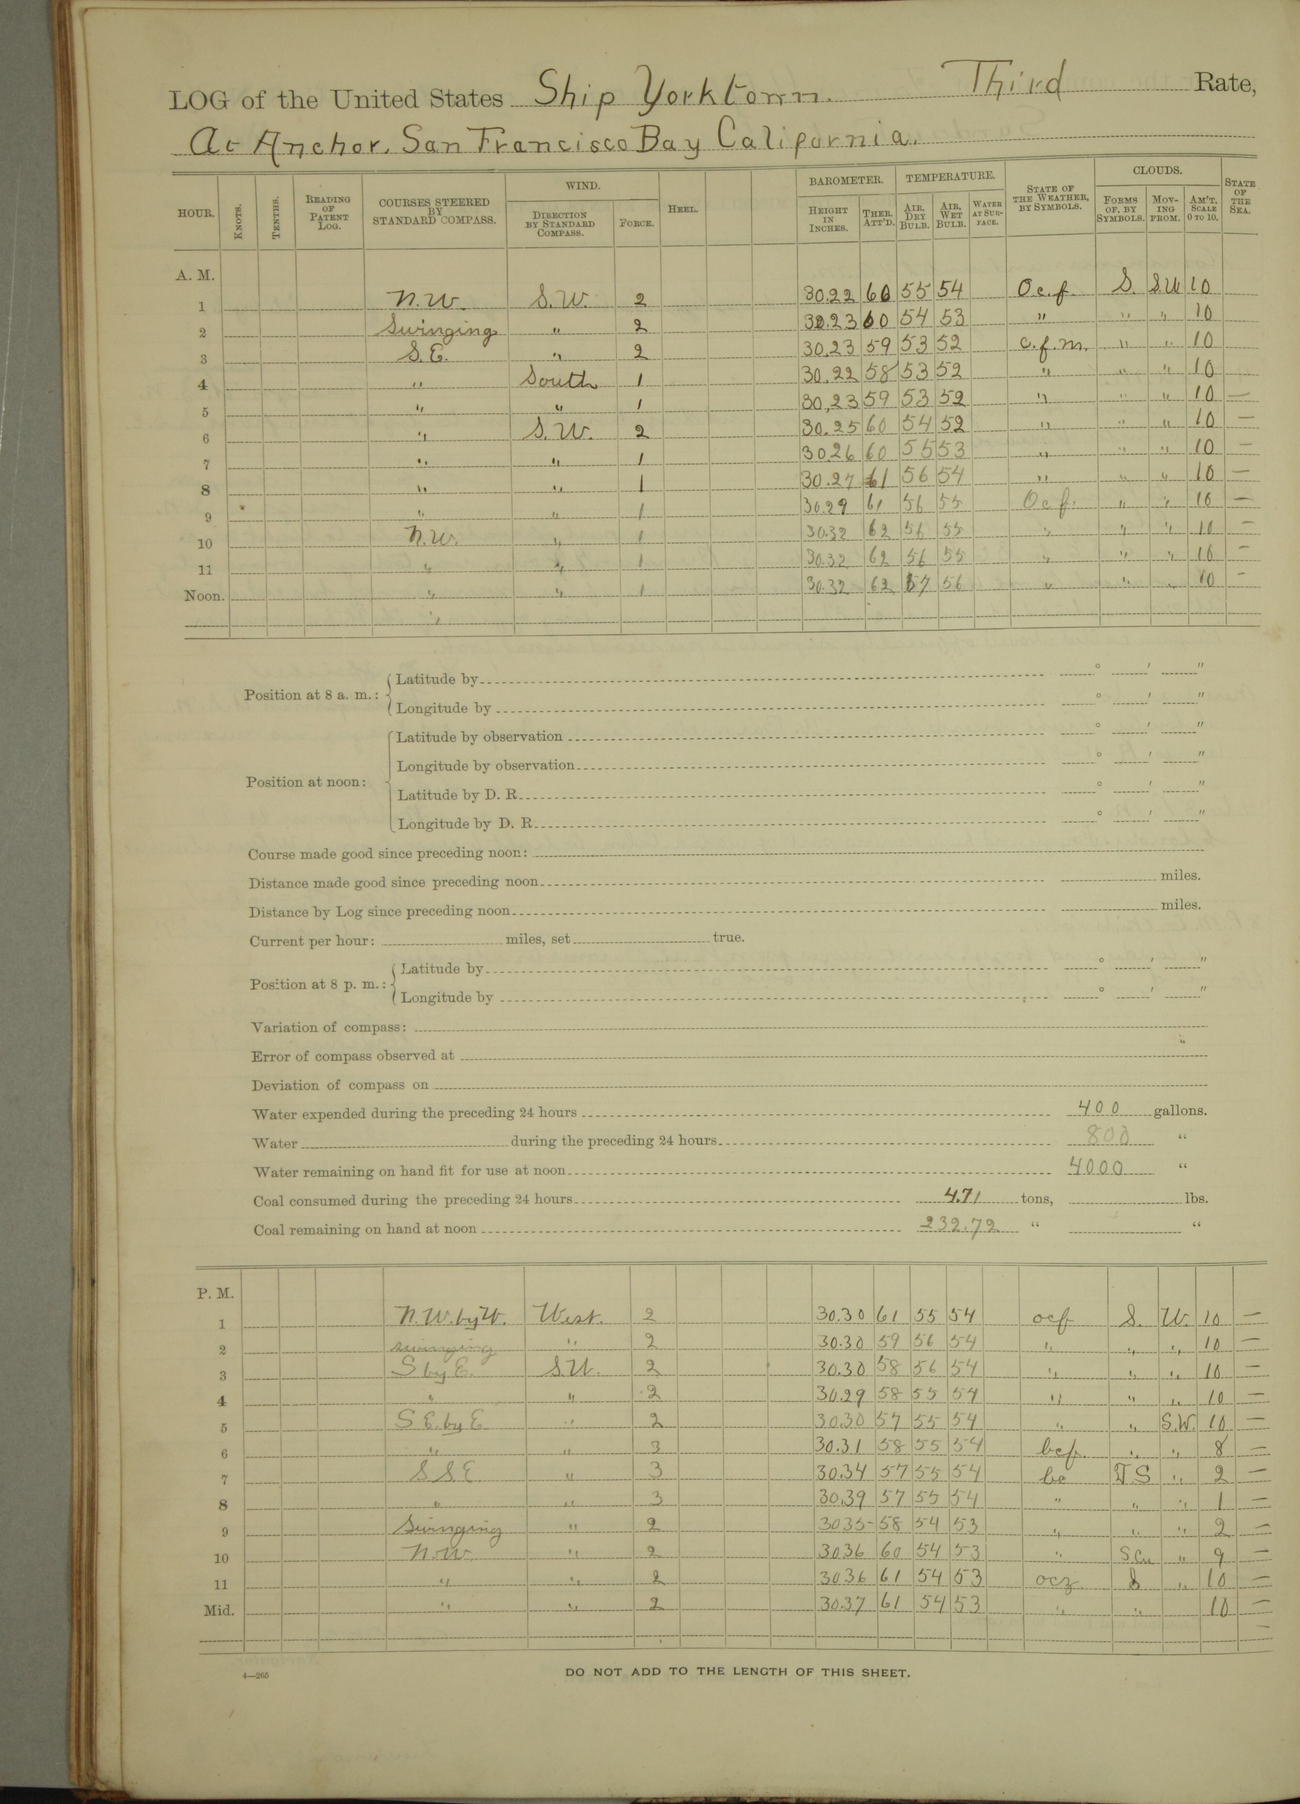 LOG of the United States Ship Yorktown. Third Rate,
At Anchor, San Francisco Bay California.
HOUR. KNOTS. TENTHS. READING OF PATENT LOG. COURSES STEERED BY STANDARD COMPASS. WIND. DIRECTION BY STANDARD COMPASS. FORCE. HEEL. BAROMETER. HEIGHT IN INCHES. THER. ATT'D. TEMPERATURE. AIR, DRY BULB. AIR, WET BULB. WATER AT SURFACE. STATE OF THE WEATHER, BY SYMBOLS. CLOUDS. FORMS OF, BY SYMBOLS. MOVING FROM. AM'T, SCALE 0 TO 10. STATE OF THE SEA.
A. M.
1 N.W. S.W. 2 30.22 60 55 54 O.c.f. S. S.W 10
2 Swinging " 2 30.23 60 54 53 " " " 10
3 S.E. " 2 30.23 59 53 52 c.f.m. " " 10
4 " South 1 30.22 58 53 52 " " " 10
5 " " 1 30.23 59 53 52 " " " 10 —
6 " S.W. 2 30.25 60 54 52 " " " 10 —
7 " " 1 30.26 60 55 53 " " " 10 —
8 " " 1 30.27 61 56 54 " " " 10 —
9 " " 1 30.29 61 56 55 O.c.f. " " 10 —
10 N.W. " 1 30.32 62 56 55 " " " 10 —
11 " " 1 30.32 62 56 55 " " " 10 —
Noon. " " 1 30.32 62 57 56 " " " 10 —
"
Position at 8 a. m.: Latitude by ° ′ ″
Longitude by ° ′ ″
Position at noon: Latitude by observation ° ′ ″
Longitude by observation ° ′ ″
Latitude by D. R. ° ′ ″
Longitude by D. R. ° ′ ″
Course made good since preceding noon:
Distance made good since preceding noon miles.
Distance by Log since preceding noon miles.
Current per hour: miles, set true.
Position at 8 p. m.: Latitude by ° ′ ″
Longitude by ° ′ ″
Variation of compass:
Error of compass observed at
Deviation of compass on
Water expended during the preceding 24 hours 400 gallons.
Water during the preceding 24 hours 800 "
Water remaining on hand fit for use at noon 4000 "
Coal consumed during the preceding 24 hours 4.71 tons, lbs.
Coal remaining on hand at noon 232.72 " "
P. M.
1 N.W. by W. West. 2 30.30 61 55 54 ocf S. W. 10 —
2 swinging " 2 30.30 59 56 54 " " " 10 —
3 S by E. S.W. 2 30.30 58 56 54 " " " 10 —
4 " " 2 30.29 58 55 54 " " " 10 —
5 S E. by E " 2 30.30 57 55 54 " " S.W. 10 —
6 " " 3 30.31 58 55 54 bcf. " " 8 —
7 S S E " 3 30.34 57 55 54 bc " 2 —
8 " " 3 30.39 57 55 54 " " " 1 —
9 Swinging " 2 30.35 58 54 53 " " " 2 —
10 N.W. " 2 30.36 60 54 53 " S Cu " 9 —
11 " " 2 30.36 61 54 53 ocz S " 10 —
Mid. " " 2 30.37 61 54 53 " " 10 —
—
4—265
DO NOT ADD TO THE LENGTH OF THIS SHEET.